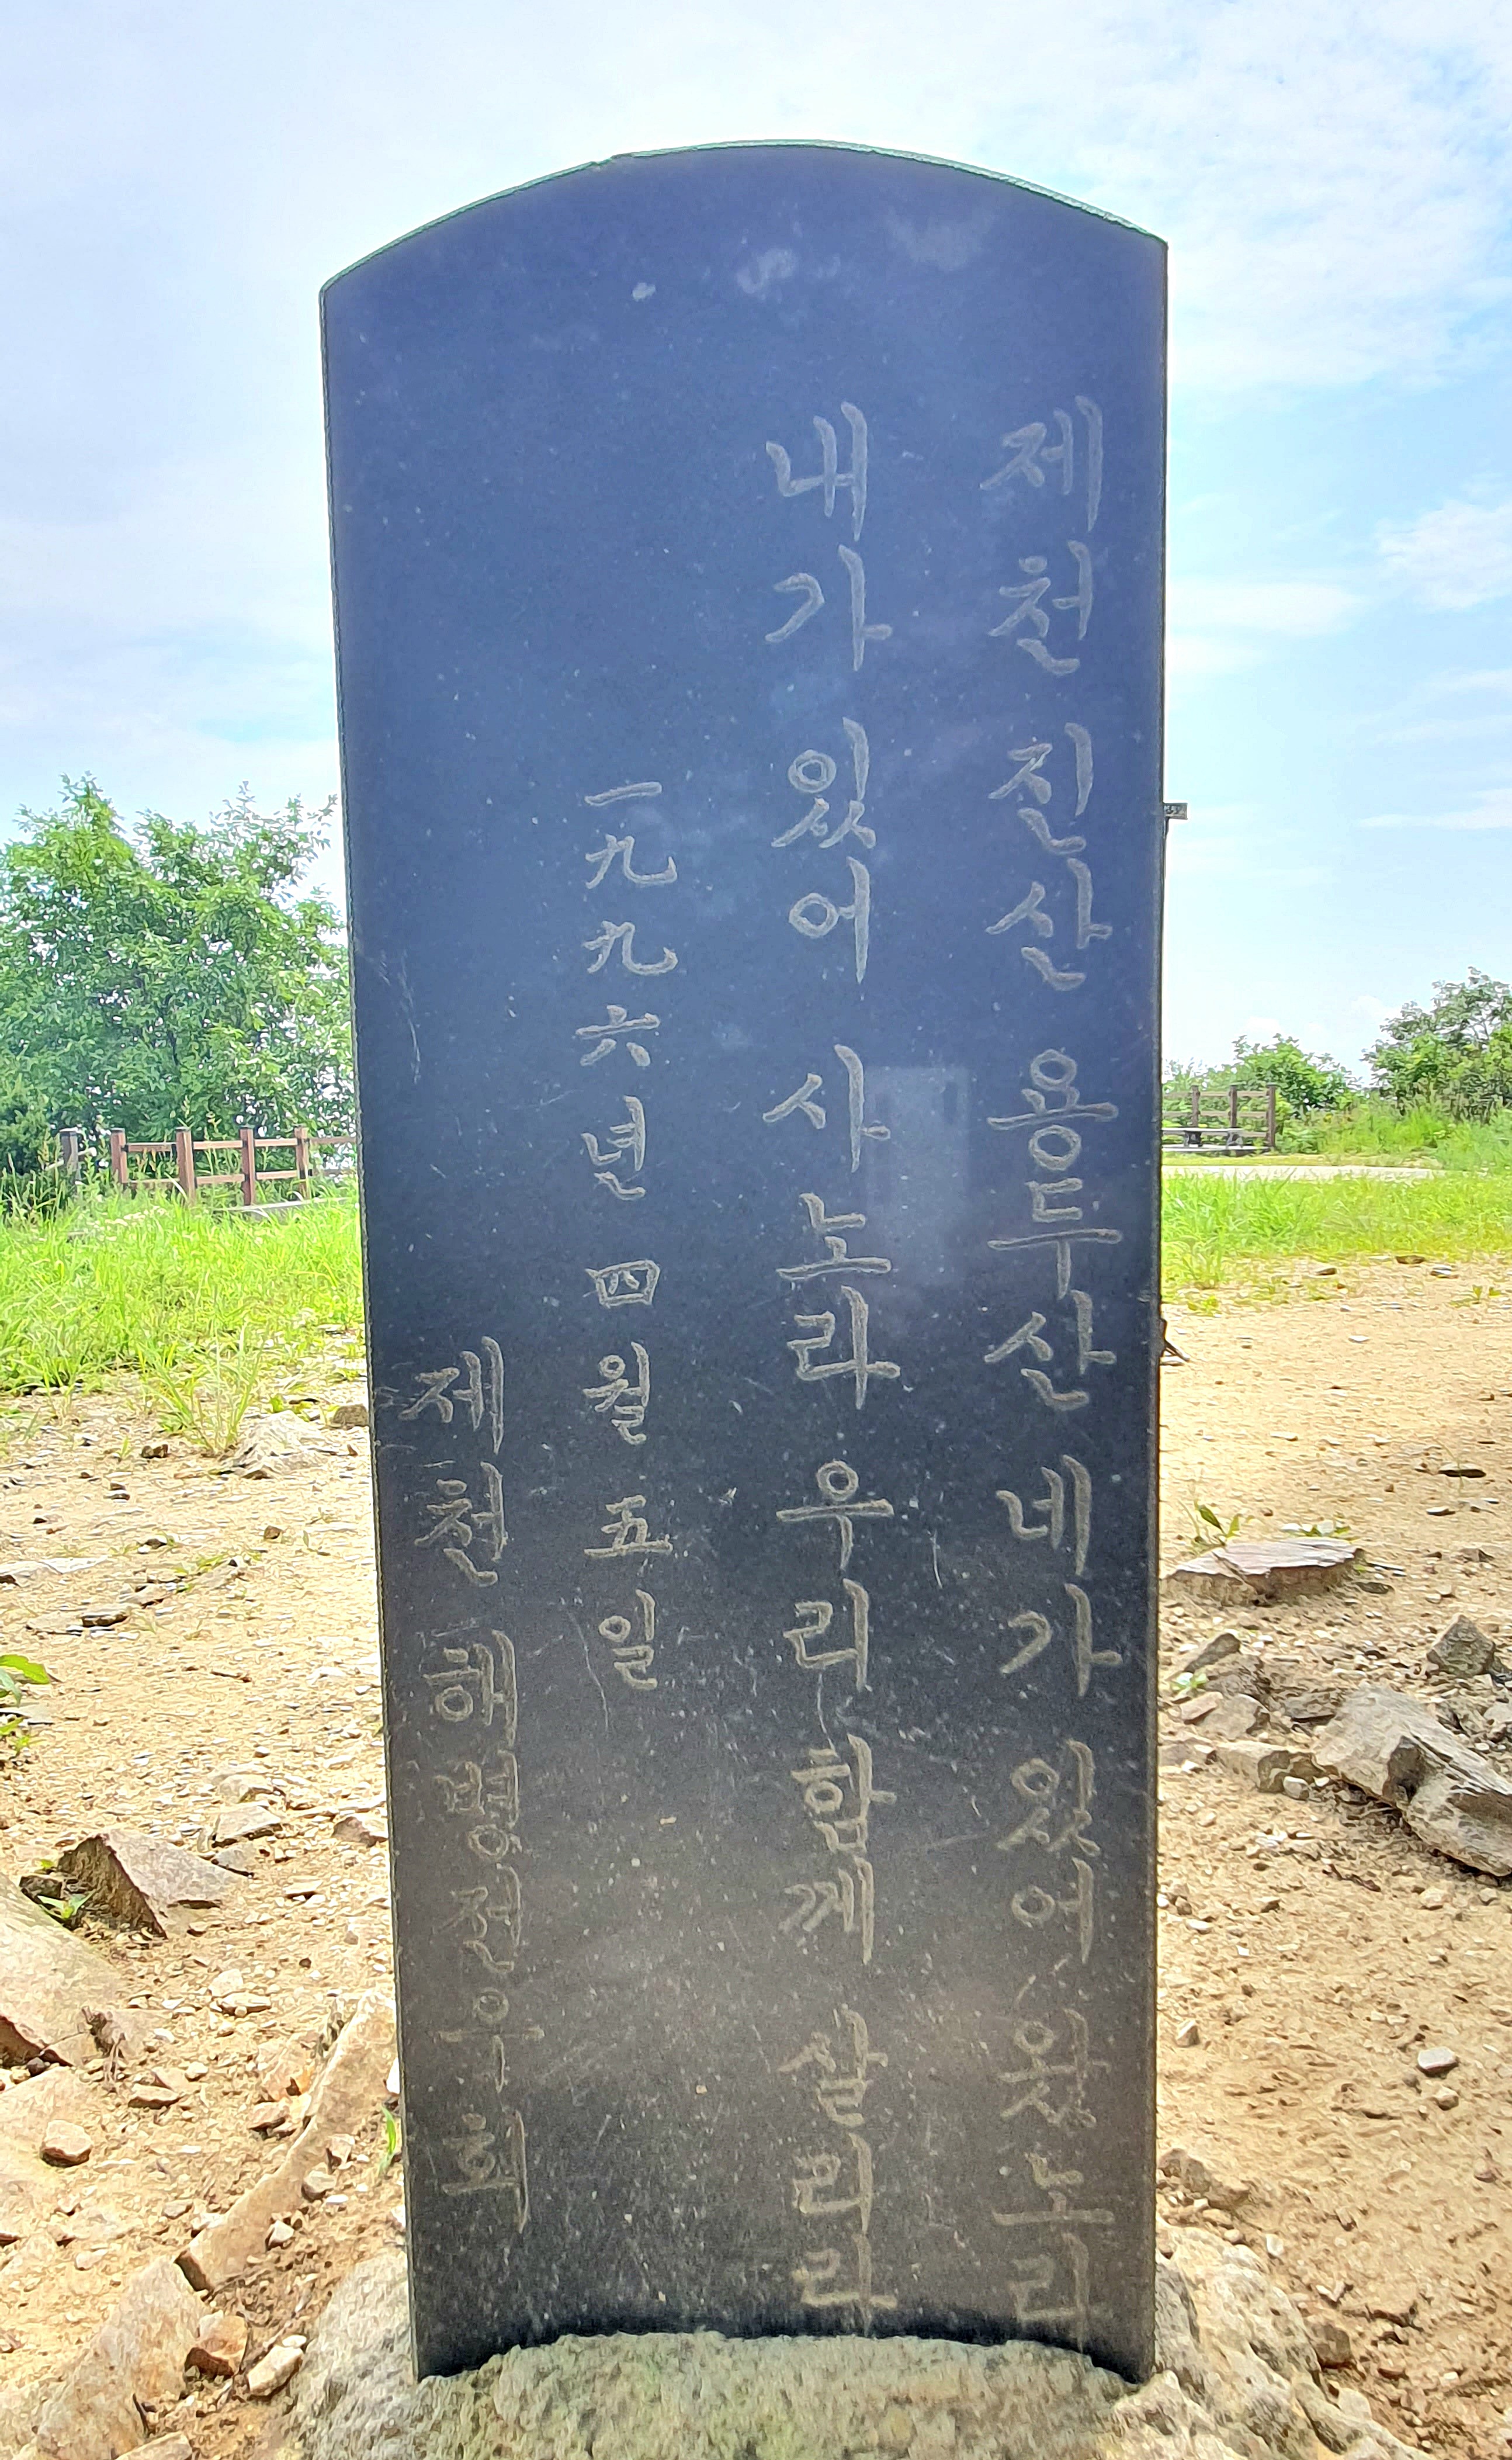 제천 진산 용두산 네가 있어 왔노라
내가 있어 사노라 우리 함께 살리라
一九九六년 四월 五일
제천 해병전우회